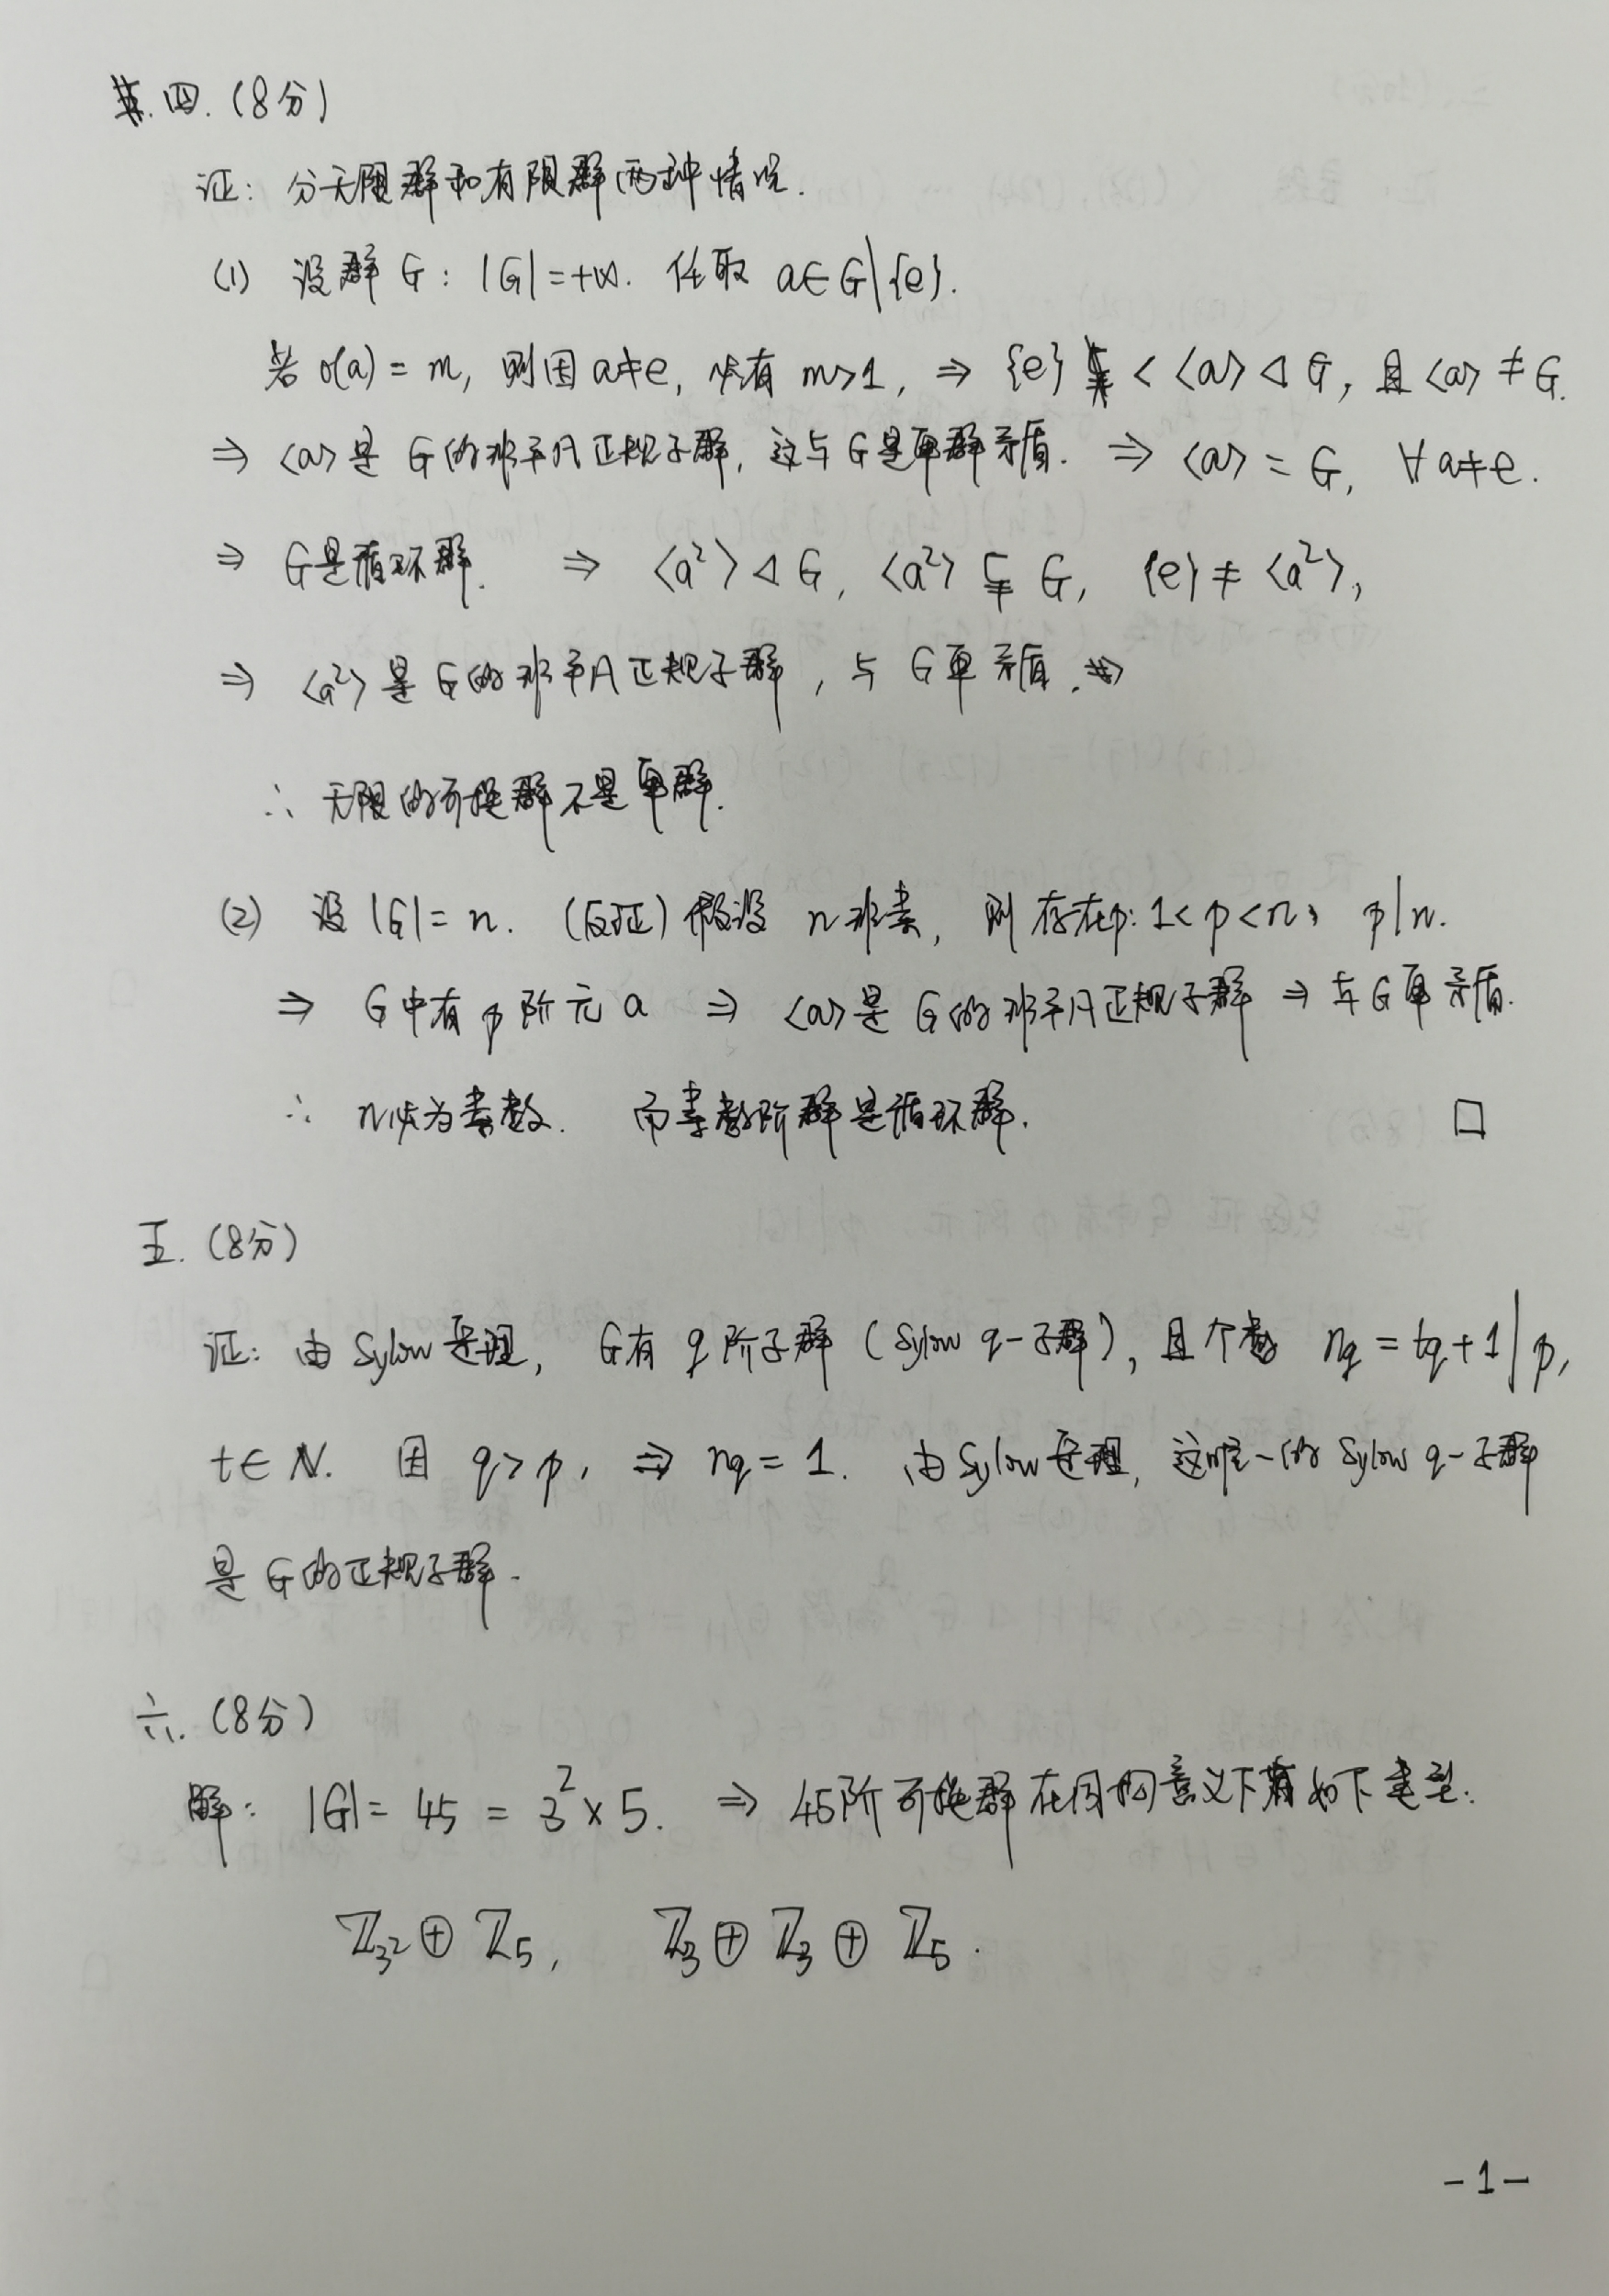 四. (8分)
证: 分无限群和有限群两种情况.
(1) 设群 G : |G| = +∞. 任取 a∈G\{e}.
若 o(a) = m, 则因 a≠e, 必有 m>1, ⇒ {e} < <a> ◁ G, 且 <a> ≠ G.
⇒ <a> 是 G 的非平凡正规子群, 这与 G 是单群矛盾. ⇒ <a> = G, ∀ a≠e.
⇒ G是循环群. ⇒ <a²> ◁ G, <a²> ⊊ G, {e} ≠ <a²>,
⇒ <a²> 是 G 的非平凡正规子群, 与 G 单矛盾.
∴ 无限的可换群不是单群.
(2) 设 |G| = n. (反证) 假设 n 非素, 则存在p: 1<p<n, p|n.
⇒ G 中有 p 阶元 a ⇒ <a> 是 G 的非平凡正规子群 ⇒ 与 G 单矛盾.
∴ n必为素数. 而素数阶群是循环群. □
五. (8分)
证: 由 Sylow 定理, G有 q 阶子群 (Sylow q-子群), 且个数 n_q = tq+1 | p,
t∈N. 因 q>p, ⇒ n_q = 1. 由 Sylow 定理, 这唯一的 Sylow q-子群
是 G 的正规子群.
六. (8分)
解: |G| = 45 = 3² × 5. ⇒ 45阶可换群在同构意义下有如下类型:
ℤ_{3²} ⊕ ℤ_5, ℤ_3 ⊕ ℤ_3 ⊕ ℤ_5.
-1-